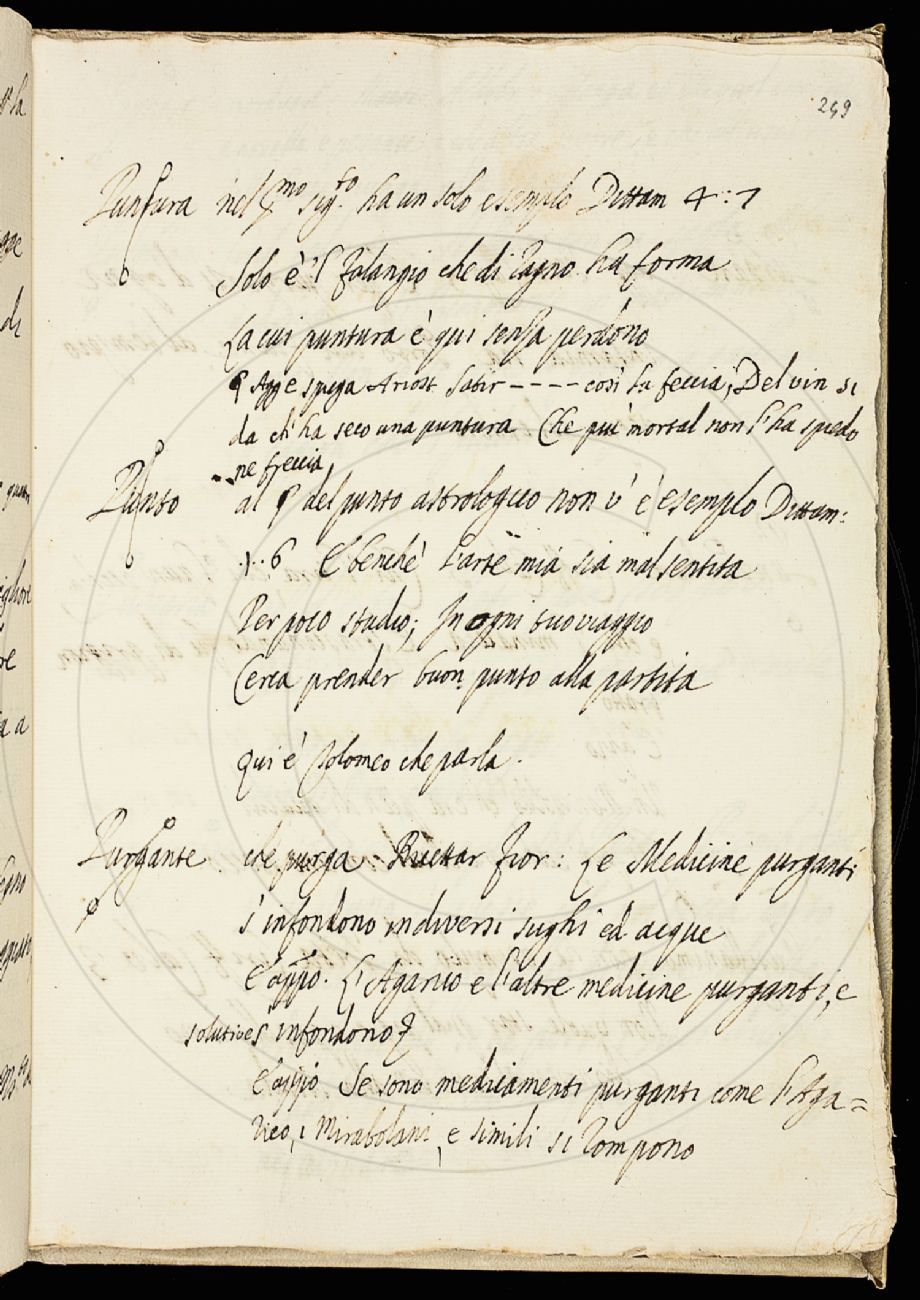 249
Puntura nel pmo sigto. ha un solo esempio Dittam 4: 7
Solo è 'l Falangio che di Ragno ha forma
La cui puntura è qui senza perdono
§ Agg e spega Ariost Satir ---- così la feccia, Del vin si
da ch'ha seco una puntura. Che più mortal non l'ha spiedo
ne freccia
Punto al § del punto astrologico non v'è esempio Dittam:
1. 6 E benchè l'arte mia sia mal sentita
Per poco studio; In ogni suo viaggio
Cerca prender buon punto alla partita
qui è Tolomeo che parla.
Purgante che purga: Ricettar Fior: Le Medicine purganti
s'infondono in diversi sughi ed acque
E appo. L'Agarico e l'altre medicine purganti, e
solutive s'infondono
E appo Se sono medicamenti purganti come l'Aga=
rico, i Mirabolani, e simili si Rompono